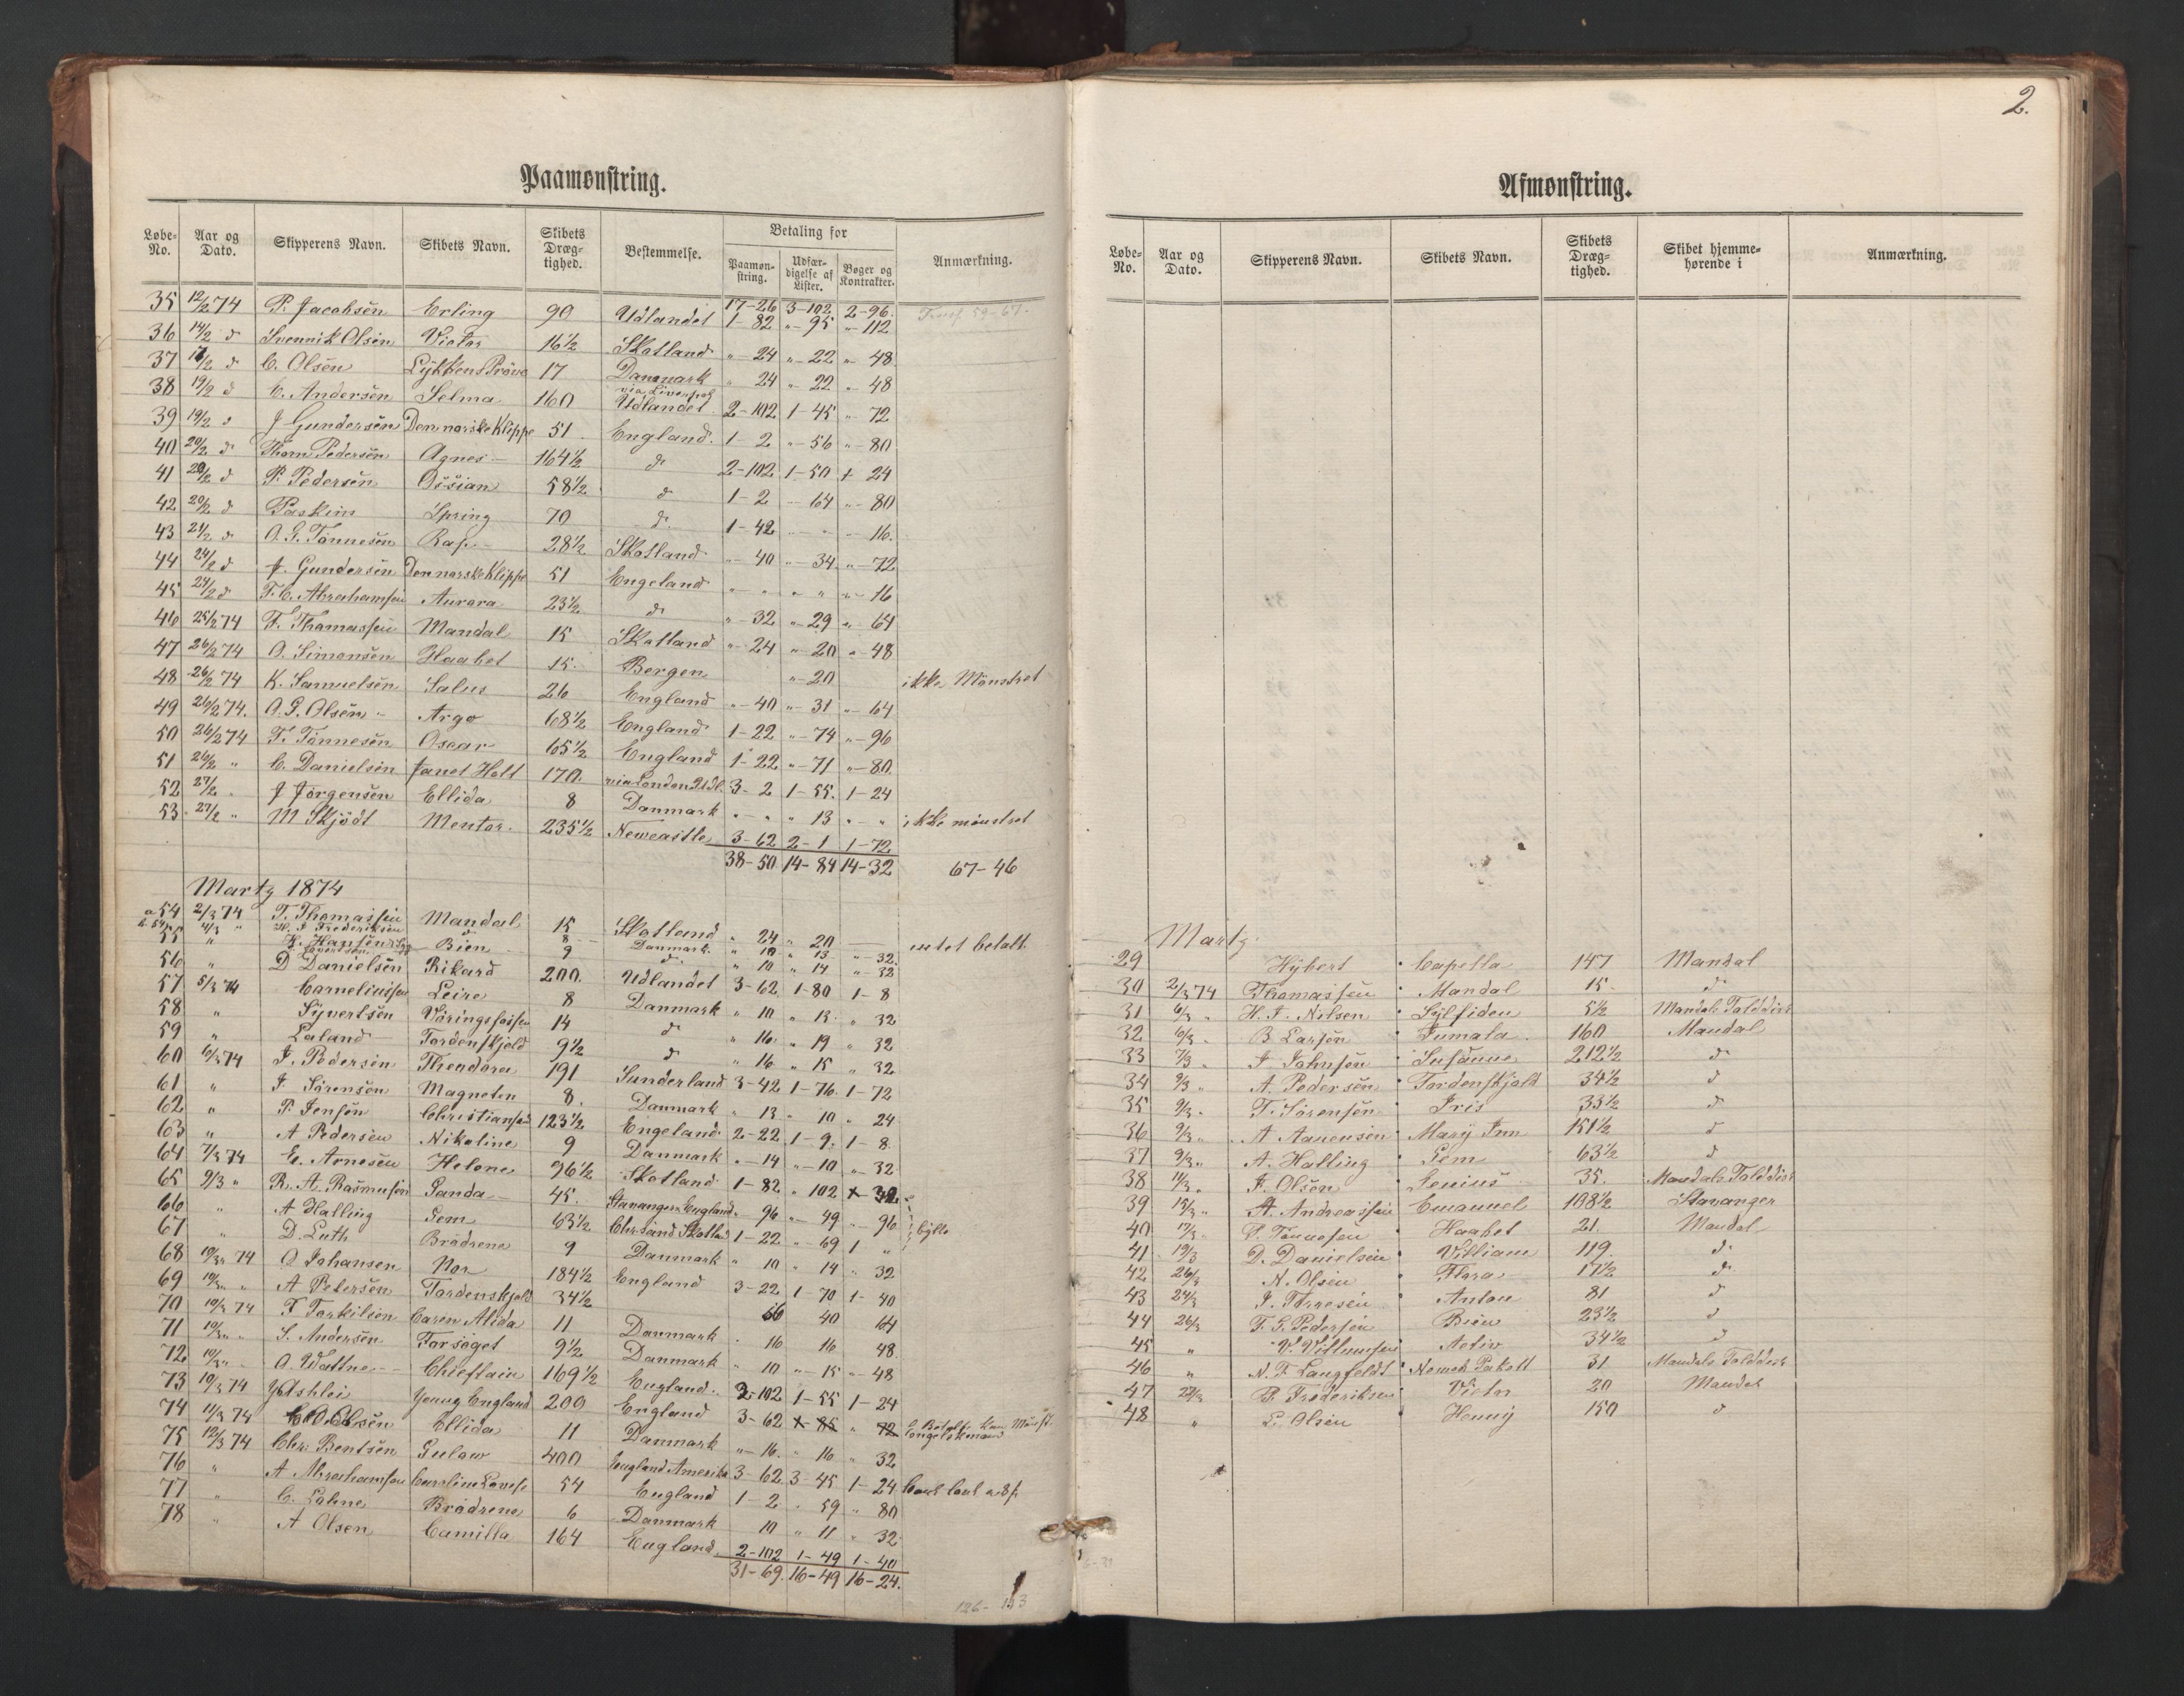 Paamønstring.
Løbe-No. Aar og Dato. Skipperens Navn. Skibets Navn. Skibets Dræg-tighed. Bestemmelse. Betaling for Paamøn-string. Udfær-digelse af Lister. Bøger og Kontrakter. Anmærkning.
17-26 3-102 2-96.
35 12/2 74 P. Jacobsen Erling 90 Udlandet 1-82 "-95 "-112
36 14/2 d Svennik Olsen Victor 16½ Skotland "-24 "-22 "-48
37 /2 d C. Olsen Lykkens Pröve 17 Danmark "-24 "-22 "-48
38 19/2 d C. Andersen Selma 160 via Liverpol Udlandet 2-102 1-45 "-72
39 19/2 d J Gundersen Den norske Klippe 51 England. 1-2 "-56 "-80
40 20/2 d Thom Pedersen Agnes 164½ d 2-102 1-50 1-24
41 20/2 d P. Pedersen Ossian 58½ d 1-2 "-64 "-80
42 20/2 d Paskim Spring 70 d. 1-42 "-" "-16.
43 21/2 d O. G. Tönnesen Rap 28½ Skotland "-40 "-34. "-72
44 24/2 d J. Gundersen Den norske Klippe 51 Engeland "-" "-" "-16
45 24/2 d T. C. Abrahamsen Aurora 23½ d "-32 "-29 "-64
46 25/2 74 T. Thomassen Mandal 15 Skotland "-24 "-20 "-48
47 26/2 74 O. Simonsen Haabet 15. Bergen "-20 ikke Mönstret
48 26/2 74 K. Samuelsen Salus 26 England "-40 "-31 "-64
49 26/2 74. O. P. Olsen Argo 68½ England 1-22 "-74 "-96
50 26/2 74 T. Tönnesen Oscar 65½ England 1-22 "-71 "-80.
51 26/2 " C. Danielsen Janet Holt 170. via London Udl. 3-2 1-55. 1-24
52 27/2 " J Jörgensen Ellida 8 Danmark "-" "13 "-" ikke mönstret
53 27/2 " M Skjödt Mentor. 235½ Newcastle 3-62 2-1 1-72
38-50 14-84 14-32 67-46
Martz 1874
a 54 2/3 74 T. Thomassen Mandal 15 Skotland "24 "20 — intet betalt
b. 54 4/3 " H. J. Frederiksen d 8 Danmark. "10 "13 "-32.
55 " H. Hansen Bien 9 d. "10 "14 "32
56 " D Danielsen Rikard 200. Udlandet 3-62 1-80 1-8
57 5/3 74 Corneliussen Leire 8 Danmark "10 "13. "32
58 " Syvertsen Vöringsfossen 14 d "16. "19 "32
59 " Laland Tordenskjold 9½ d "16 "15 "32
60 6/3 74 J. Pedersen Theodora 191 Sunderland 3-42 1-76. 1-72
61 " J. Sörensen Magneten 8. Danmark "13 "10 "24
62 " P. Jensen Christiansand 123½ Engeland 2-22 1-9. 1-8
63 " A Pedersen Nikoline 9 Danmark "-14 "-10 "-32
64 7/3 74 E. Arnesen Helene 96½ Skotland 1-82 "102
65 9/3 " R. A. Rasmusen Sanda 45. Stavanger England "96 "-49 "-96
66 " A Halling Gem 63½ Chrsand Skotland 1-22 "-69 1 "
67 " D. Luth Brödrene 9 Danmark "10 "14 "32
68 10/3 74 O Johansen Nor 184½ England 3-22 1-70 1-40
69 10/3 " A Petersen Tordenskjold 34½ 56 40 64
70 10/3 74 T Torkilsen Caren Alida 11 Danmark "16 16 "48
71 10/3 " S. Andersen Forsöget 9½ Danmark "10 "-15 "-48
72 10/3 " O. Wattne Chieftain 169½ England. 2-102 1-55 1-24
73 10/3 74 Y Ashlei Young England 200 England 3-62 1-85 "72
74 11/3 74 Olsen Ellida 11 Danmark "-16. "16 "32
75 12/3 74 Chr. Bentsen Gulaw 400 England Amerika 3-62. 3-45 1-24
76 " A Abrahamsen Caroline Lovise 54 England 1-2 "59 "80
77 " C. Lohne Brödrene 6 Danmark 10 "11 "32.
78 " A Olsen Camilla 164 England 2-102 1-49 1-40
31-69. 16-49 16-24.
2.
Afmønstring.
Løbe-No. Aar og Dato. Skipperens Navn. Skibets Navn. Skibets Dræg-tighed. Skibet hjemme-hørende i Anmærkning.
Martz
29 Hÿbert Capella 147 Mandal
30 2/3 74 Thomassen Mandal 15. d
31 6/3 " H. T. Nilsen Sylfiden 5½ Mandals Tolddist
32 6/3 " B Larsen Jumala 160 Mandal
33 7/3 " J Johnsen Susanne 212½ d
34 9/3 " A. Pedersen Tordenskjold 34½ d
35 9/3 " T. Sörensen Iris 33½ d
36 9/3 " A Aanensen Mary Ann 151½ d
37 9/3 " A. Halling Gem 63½ d
38 14/3 " J. Olsen Genius 35. Mandals Tolddist
39 15/3 " A. Andreassen Emanuel 108½ Stavanger
40 17/3 " Tönnesen Haabet 21. Mandal
41 19/3 D. Danielsen William 119. d
42 26/3 N. Olsen Flora 17½ d
43 24/3 J. Tönnesen Anton 81 d
44 26/3 T. G. Pedersen Bien 23½ d
45 " W. Villumsen Activ 34½ d
46 " N. F. Langfeldt Nomek Pakett 31 Mandals Tolddist
47 27/3 P. Frederiksen Victor 20 Mandal
48 " L. Olsen Henny 150 d